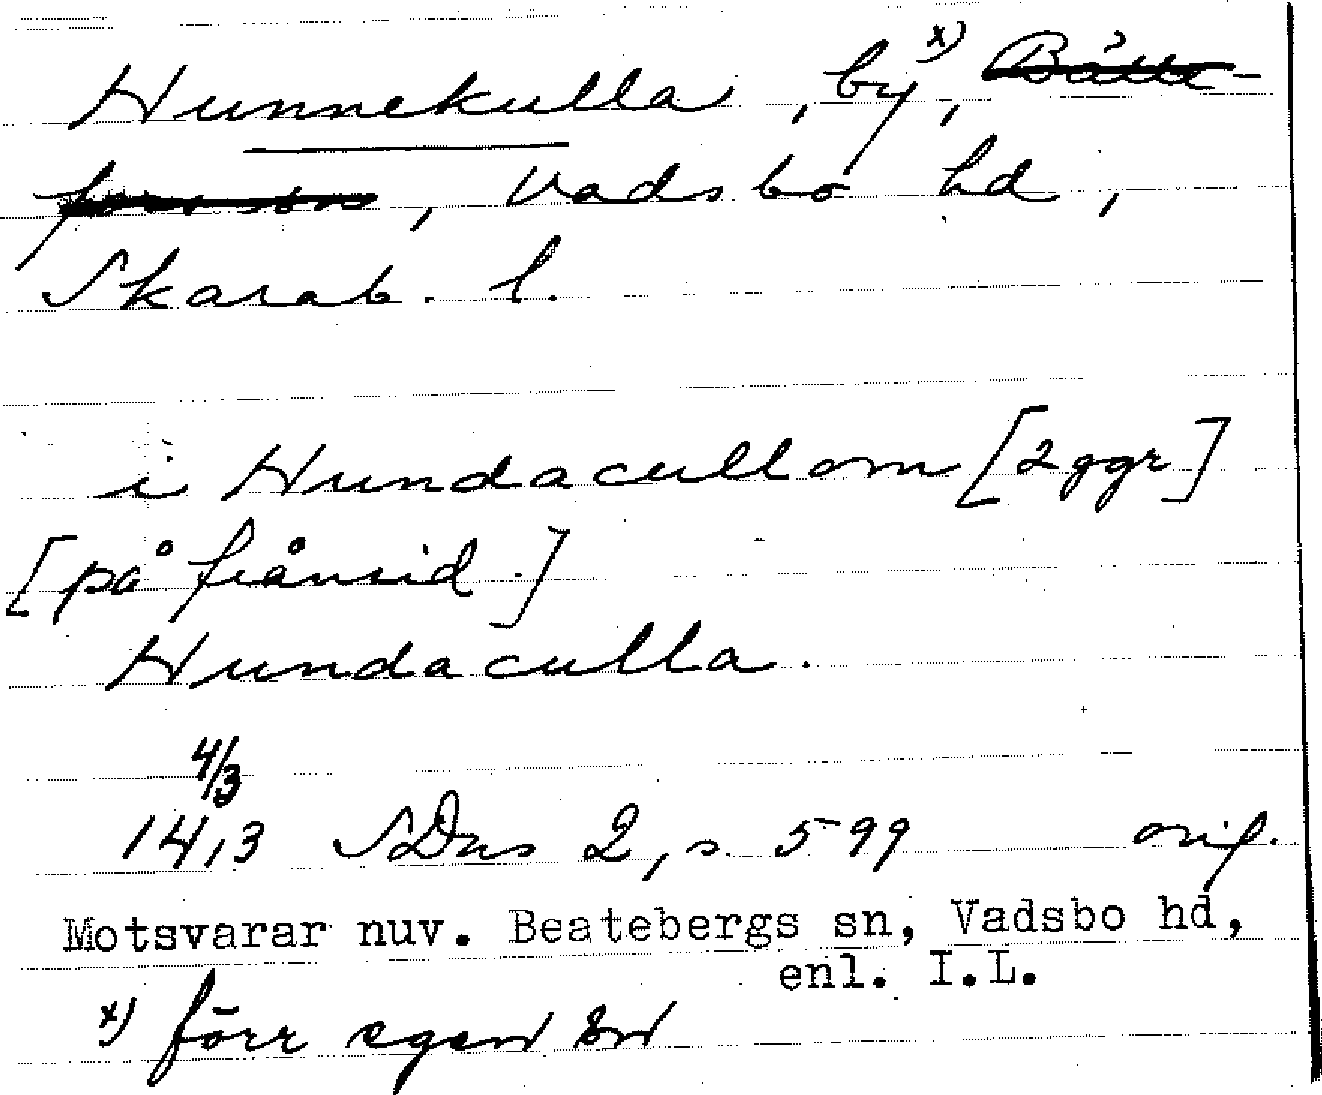 Hunnekulla, by x), Bälle-
fors sn, Vadsbo hd,
Skarab. l.
i Hundacullom [2 ggr]
[på frånsid.]
Hundaculla.
4/3
1413 SDns 2, s. 599 orig.
Motsvarar nuv. Beatebergs sn, Vadsbo hd,
enl. I.L.
x) förr egen sn